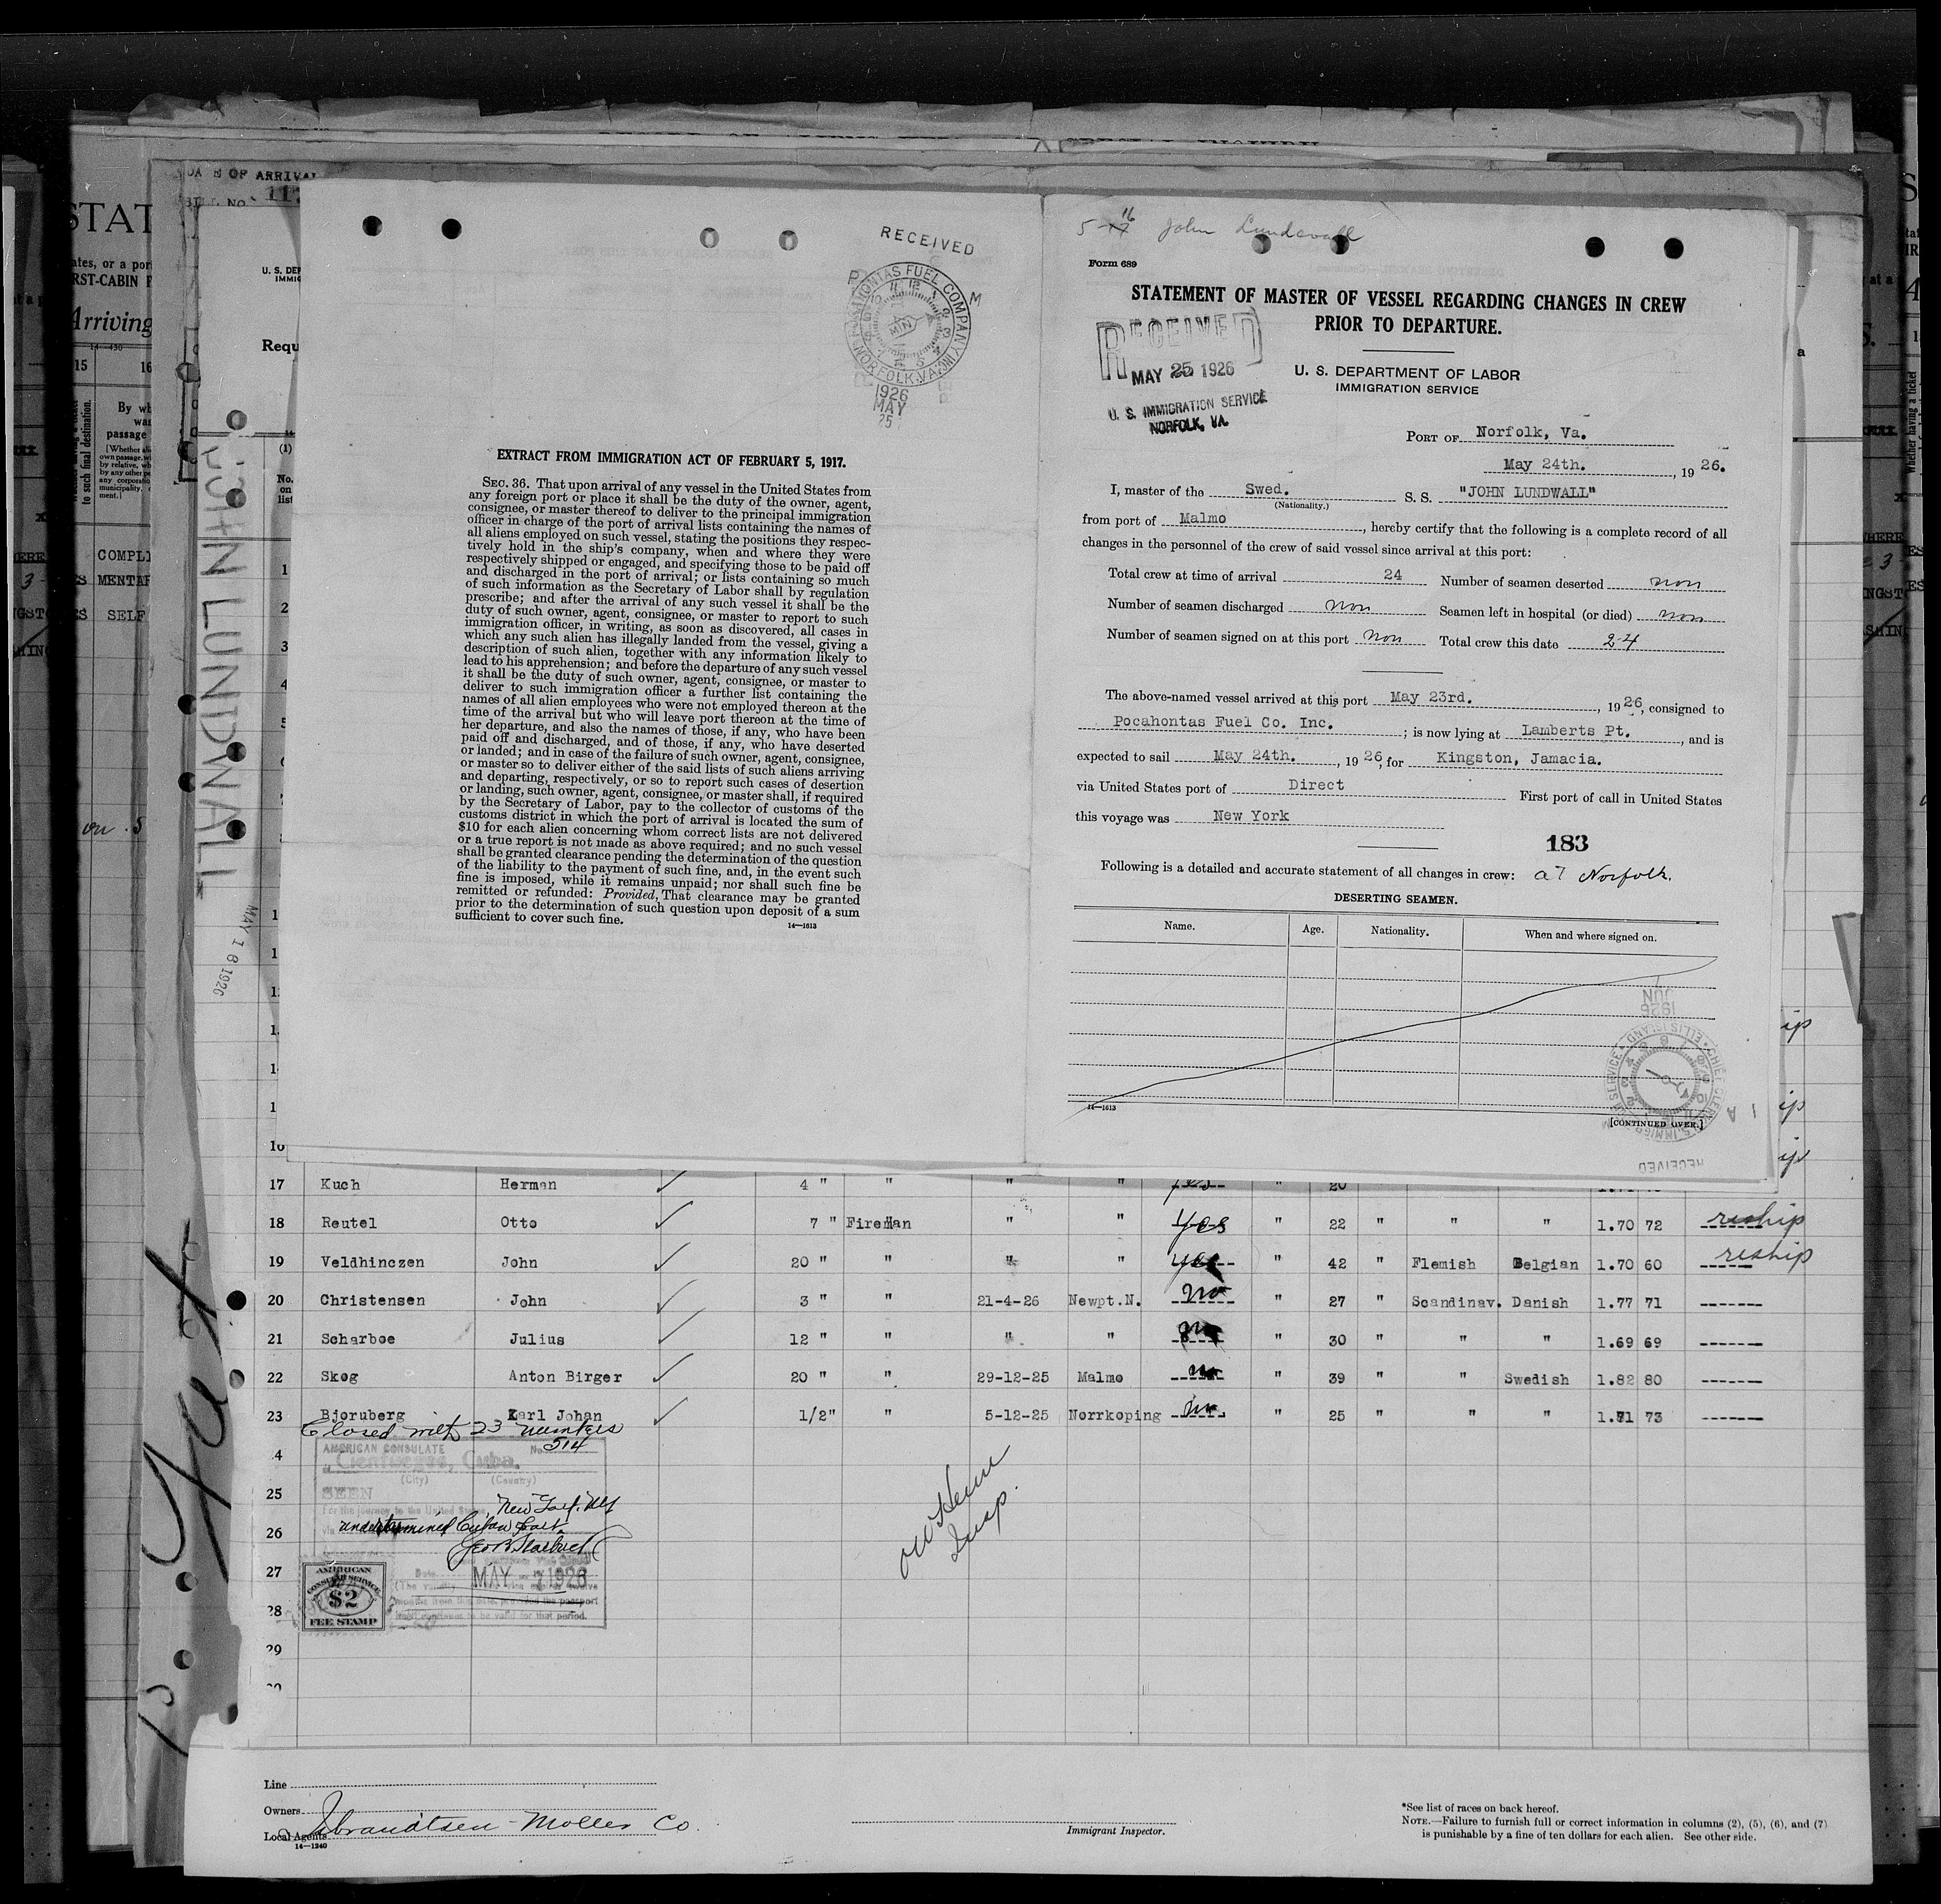 DATE OF ARRIVAL
BILL NO.
11
STAT
RST-CABIN P
Arriving
15
16
By wh
passage
COMPLI
MENTAR
SELF
JOHN LUNDWALL
MAY 18 1926
Requ
(1)
No.
on
list
RECEIVED
POCAHONTAS FUEL COMPANY INC.
NORFOLK, VA.
1926
MAY
25
EXTRACT FROM IMMIGRATION ACT OF FEBRUARY 5, 1917.
SEC. 36. That upon arrival of any vessel in the United States from
any foreign port or place it shall be the duty of the owner, agent,
consignee, or master thereof to deliver to the principal immigration
officer in charge of the port of arrival lists containing the names of
all aliens employed on such vessel, stating the positions they respec-
tively hold in the ship's company, when and where they were
respectively shipped or engaged, and specifying those to be paid off
and discharged in the port of arrival; or lists containing so much
of such information as the Secretary of Labor shall by regulation
prescribe; and after the arrival of any such vessel it shall be the
duty of such owner, agent, consignee, or master to report to such
immigration officer, in writing, as soon as discovered, all cases in
which any such alien has illegally landed from the vessel, giving a
description of such alien, together with any information likely to
lead to his apprehension; and before the departure of any such vessel
it shall be the duty of such owner, agent, consignee, or master to
deliver to such immigration officer a further list containing the
names of all alien employees who were not employed thereon at the
time of the arrival but who will leave port thereon at the time of
her departure, and also the names of those, if any, who have been
paid off and discharged, and of those, if any, who have deserted
or landed; and in case of the failure of such owner, agent, consignee,
or master so to deliver either of the said lists of such aliens arriving
and departing, respectively, or so to report such cases of desertion
or landing, such owner, agent, consignee, or master shall, if required
by the Secretary of Labor, pay to the collector of customs of the
customs district in which the port of arrival is located the sum of
$10 for each alien concerning whom correct lists are not delivered
or a true report is not made as above required; and no such vessel
shall be granted clearance pending the determination of the question
of the liability to the payment of such fine, and, in the event such
fine is imposed, while it remains unpaid; nor shall such fine be
remitted or refunded: Provided, That clearance may be granted
prior to the determination of such question upon deposit of a sum
sufficient to cover such fine.
14—1613
5-16 John Lundevall
Form 689
STATEMENT OF MASTER OF VESSEL REGARDING CHANGES IN CREW
PRIOR TO DEPARTURE.
RECEIVED
MAY 25 1926
U. S. IMMIGRATION SERVICE
NORFOLK, VA.
U. S. DEPARTMENT OF LABOR
IMMIGRATION SERVICE
PORT OF Norfolk, Va.
May 24th. , 1926.
I, master of the Swed. S. S. "JOHN LUNDWALL"
(Nationality.)
from port of Malmo , hereby certify that the following is a complete record of all
changes in the personnel of the crew of said vessel since arrival at this port:
Total crew at time of arrival 24 Number of seamen deserted non
Number of seamen discharged non Seamen left in hospital (or died) non
Number of seamen signed on at this port non Total crew this date 24
The above-named vessel arrived at this port May 23rd. , 1926, consigned to
Pocahontas Fuel Co. Inc. ; is now lying at Lamberts Pt. , and is
expected to sail May 24th. , 1926, for Kingston, Jamacia.
via United States port of Direct First port of call in United States
this voyage was New York
183
Following is a detailed and accurate statement of all changes in crew: at Norfolk.
DESERTING SEAMEN.
Name. Age. Nationality. When and where signed on.
14—1613
[CONTINUED OVER.]
JUN
1926
RECEIVED
17 Kuch Herman 4 " " " " yes " 20
18 Reutel Otto 7 " Fireman " " yes " 22 " " " 1.70 72 reship
19 Veldhinczen John 20 " " " " yes " 42 " Flemish Belgian 1.70 60 reship
20 Christensen John 3 " " 21-4-26 Newpt.N. no " 27 " Scandinav. Danish 1.77 71
21 Scharboe Julius 12 " " " " no " 30 " " " 1.69 69
22 Skog Anton Birger 20 " " 29-12-25 Malmo no " 39 " " Swedish 1.82 80
23 Bjoruberg Karl Johan 1/2" " 5-12-25 Norrkoping no " 25 " " " 1.71 73
Closed with 23 numbers
AMERICAN CONSULATE No. 514
Cienfuegos, Cuba.
(City) (Country)
SEEN
For the journey to the United States
New York, NY
via undetermined Cuban port.
Date MAY 7 1926
AMERICAN
CONSULAR SERVICE
$2
FEE STAMP
25
26
27
28
29
Insp.
Line
Owners
Isbrandtsen-Moller Co.
Local Agents
14—1240
Immigrant Inspector.
*See list of races on back hereof.
NOTE.—Failure to furnish full or correct information in columns (2), (5), (6), and (7)
is punishable by a fine of ten dollars for each alien. See other side.